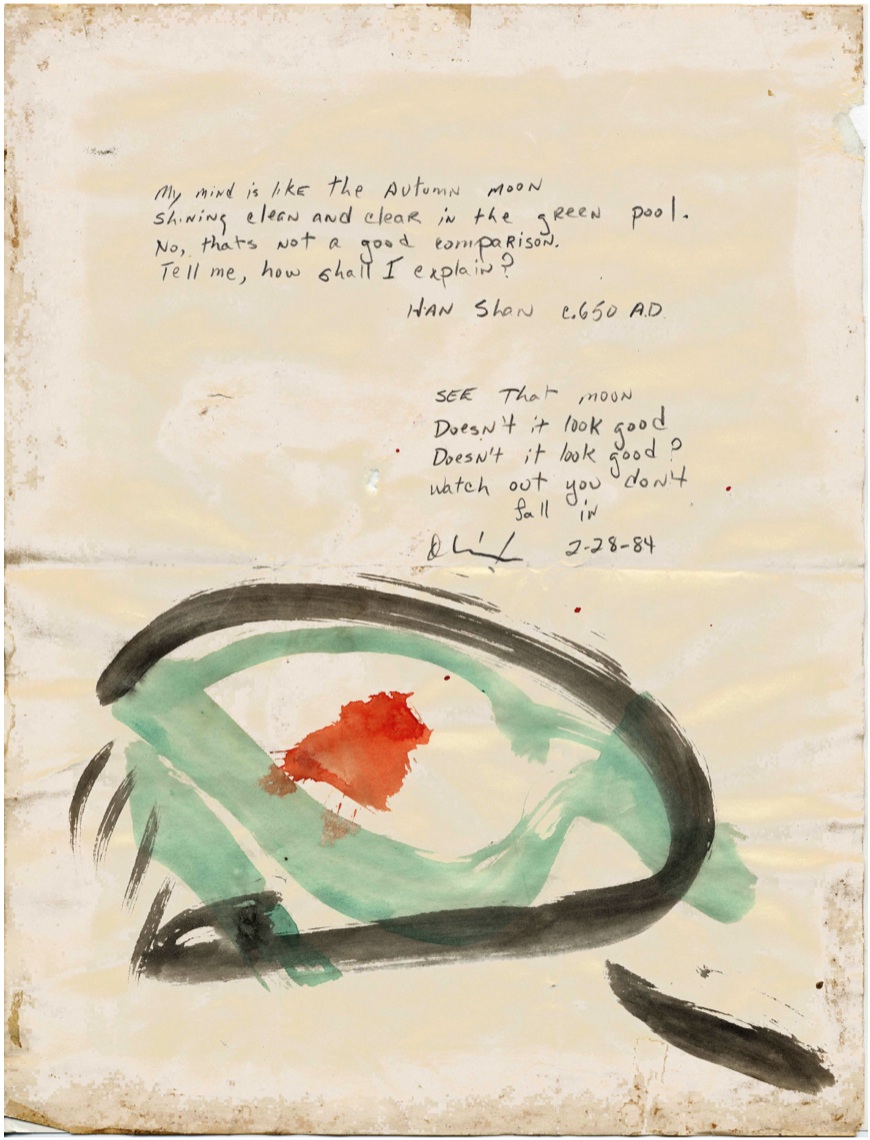 My mind is like the Autumn moon
shining clean and clear in the green pool.
No, thats not a good comparison.
Tell me, how shall I explain?
HAN Shan c.650 A.D.
SEE That moon
Doesn't it look good
Doesn't it look good?
watch out you don't
fall in
2-28-84